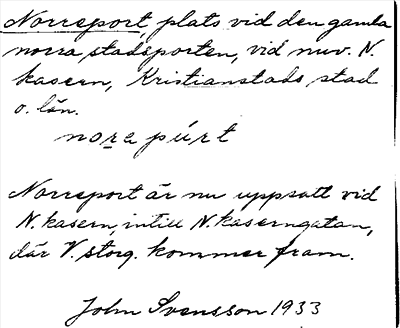 Norreport, plats vid den gamla
norra stadsporten, vid nuv. N.
kasern, Kristianstads stad
o. län.
norepúrt
Norreport är nu uppsatt vid
N. kasern, intill N. Kaserngatan,
där V. storg. kommer fram.
John Svensson 1933